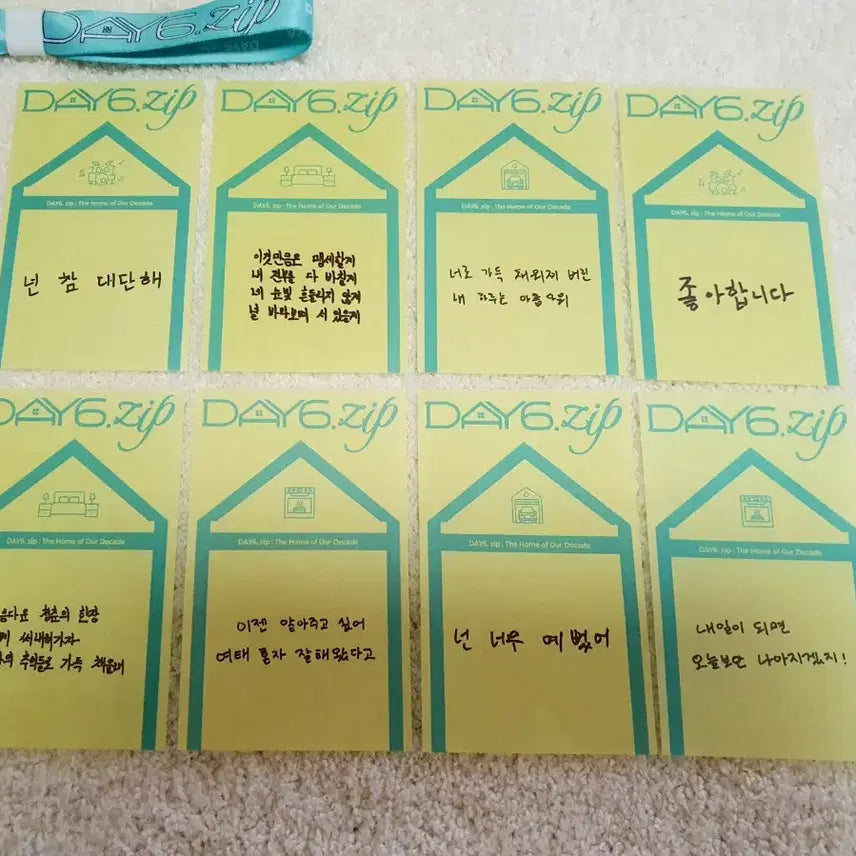 DAY6.zip
DAY6.zip
DAY6. zip : The Home of Our Decade
넌 참 대단해
DAY6.zip
DAY6. zip : The Home of Our Decade
이것만큼은 맹세할게
내 전부를 다 바칠게
네 눈빛 흔들리지 않게
널 바라보며 서 있을게
DAY6.zip
DAY6. zip : The Home of Our Decade
너로 가득 채워져 버린
내 하루는 마음
DAY6.zip
DAY6. zip : The Home of Our Decade
좋아합니다
DAY6.zip
DAY6. zip : The Home of Our Decade
청춘의 한 장
써내려가자
추억들로 가득 채울래
DAY6.zip
DAY6. zip : The Home of Our Decade
이젠 알아주고 싶어
여태 혼자 잘해왔다고
DAY6.zip
DAY6. zip : The Home of Our Decade
넌 너무 예뻤어
DAY6.zip
DAY6. zip : The Home of Our Decade
내일이 되면
오늘보단 나아지겠지!